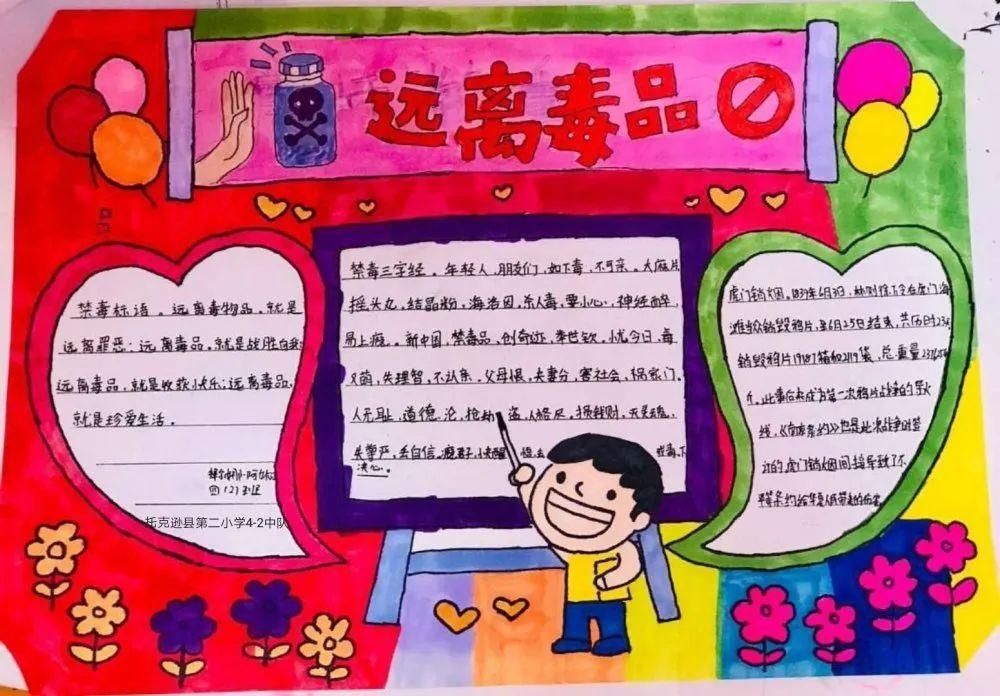 远离毒品
禁毒标语。远离毒物品,就是
远离罪恶;远离毒品,就是战胜自我;
远离毒品,就是收获快乐;远离毒品,
就是珍爱生活。
四(2)班
托克逊县第二小学4-2中队
禁毒三字经。年轻人,朋友们,如下毒,不可亲。大麻片
摇头丸,结晶粉,海洛因,杀人毒,要小心,神经醉,
易上瘾。新中国,禁毒品,创奇迹,举世钦,忧今日,毒
又萌,失理智,不认亲,父母恨,夫妻分,害社会,祸家门。
人无耻,道德沦,抢劫 盗,人格尽。损钱财,灵魂,
失尊严,丢自信。瘾君子,快醒 悟,去 戒毒,下
决心。
虎门销烟。1839年6月3日,林则徐下令在虎门海
滩当众销毁鸦片,至6月25日结束,共历时23天
销毁鸦片19187箱和2119袋,总重量
斤。此事后来成为第一次鸦片战争的导火
线,《南京条约》也是此次战争时签
订的虎门销烟间接导致了不
平等条约给华夏人民带来的伤害